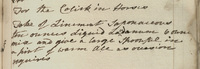 For the Colick in Horses
Take of Linement Saponaceous
ten ounces liquid Ladanum 2 ounc
mix and give a large spoonful in
a pint of warm Ale as occasion
requires